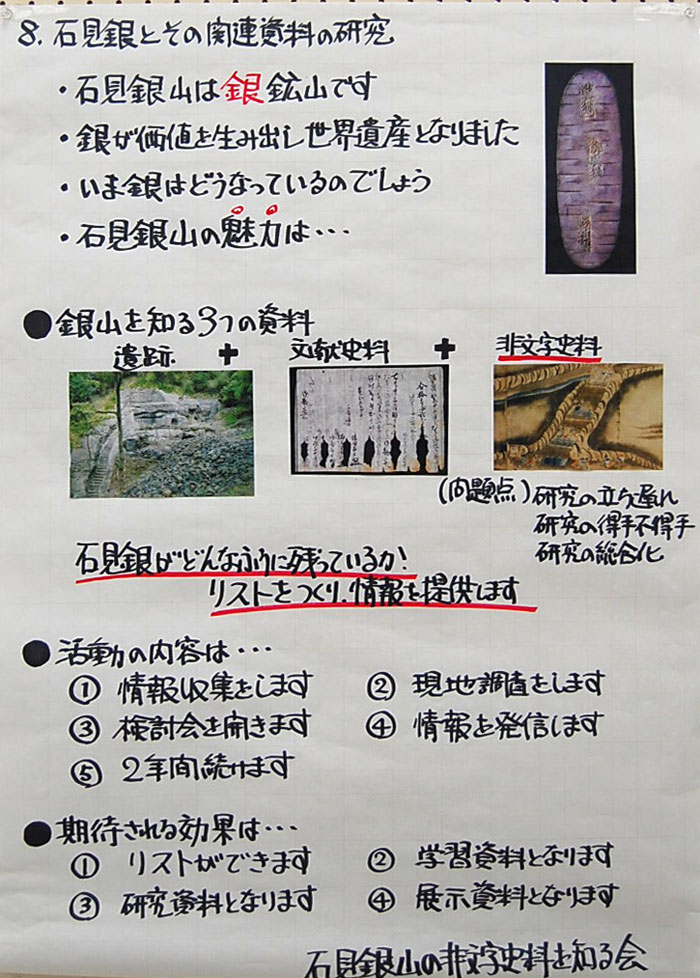 8. 石見銀とその関連資料の研究
・石見銀山は銀鉱山です
・銀が価値を生み出し世界遺産となりました
・いま銀はどうなっているのでしょう
・石見銀山の魅力は・・・
●銀山を知る3つの資料
遺跡 + 文献史料 + 非文字史料
(問題点) 研究の立ち遅れ
研究の得手不得手
研究の総合化
石見銀がどんなふうに残っているか!
リストをつくり、情報を提供します
●活動の内容は・・・
① 情報収集をします ② 現地調査をします
③ 検討会を開きます ④ 情報を発信します
⑤ 2年間続けます
●期待される効果は・・・
① リストができます ② 学習資料となります
③ 研究資料となります ④ 展示資料となります
石見銀山の非文字史料を知る会